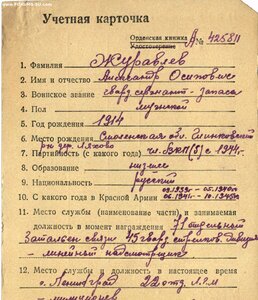 Учетная карточка
Орденская книжка
Удостоверение А № 425811
1. Фамилия Журавлев
2. Имя и отчество Александр Осипович
3. Воинское звание гвард. сержант - запаса
4. Пол мужской
5. Год рождения 1914
6. Место рождения Смоленская обл. Глинковский
рн дер. Ляхово
7. Партийность (с какого года) чл. ВКП(б) с 1944г.
8. Образование низшее
9. Национальность русский
10. С какого года в Красной Армии 09.1939г - 05.1940г
06.1941г - 10.1945г
11. Место службы (наименование части) и занимаемая
должность в момент награждения 71 отдельный
батальон связи 45 гвард. стрелков. дивизии
- линейный надсмотрщик
12. Место службы и должность в настоящее время
г. Ленинград 22 отд. Л.Г.М